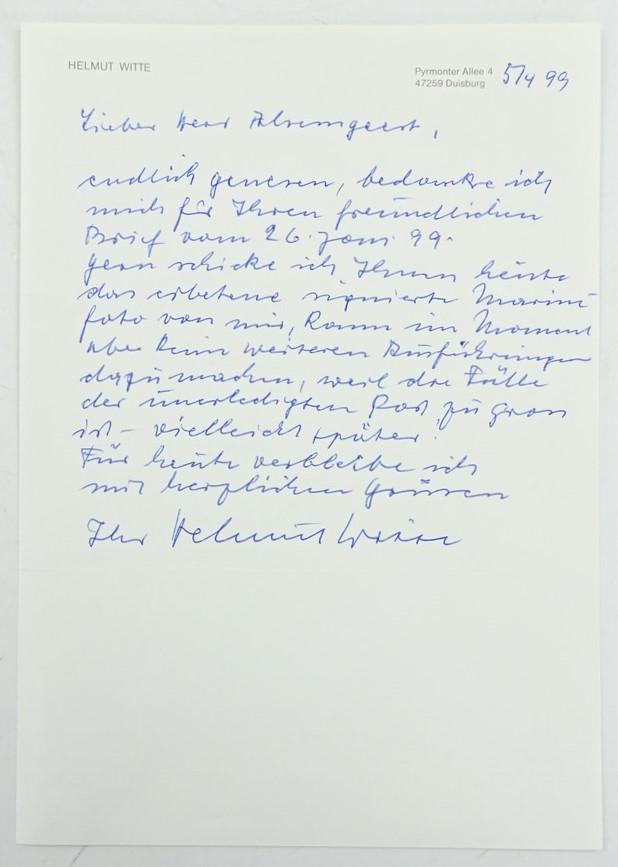 HELMUT WITTE
Pyrmonter Allee 4
47259 Duisburg
5/4 99
Lieber Herr
endlich genesen, bedanke ich
mich für Ihren freundlichen
Brief vom 26. Jan. 99.
Gern schicke ich Ihnen heute
das erbetene signierte Marine-
foto von mir, kann im Moment
aber keine weiteren Ausführungen
dazu machen, weil die Fülle
der unerledigten Post zu gross
ist – vielleicht später!
Für heute verbleibe ich
mit herzlichen Grüssen
Ihr Helmut Witte